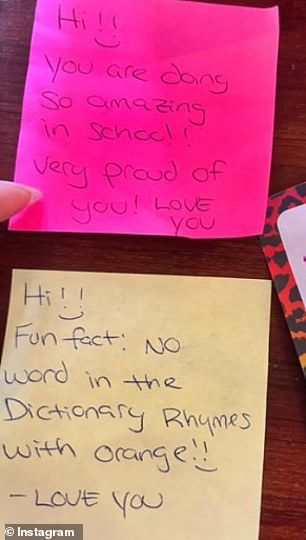 Hi!!
You are doing
so amazing
in school!
very proud of
you! LOVE
YOU
Hi!!
Fun fact: NO
word in the
Dictionary Rhymes
with orange!!
- LOVE YOU
© Instagram